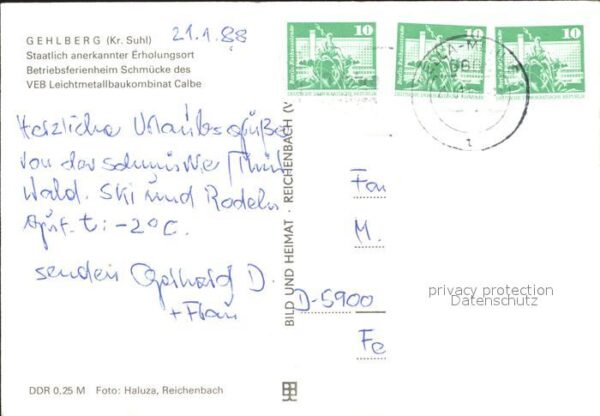 21.1.88
GEHLBERG (Kr. Suhl)
Staatlich anerkannter Erholungsort
Betriebsferienheim Schmücke des
VEB Leichtmetallbaukombinat Calbe
Herzliche Urlaubsgrüße
von der Schmücke / Thür.
Wald. Ski und Rodeln
t: -2°C.
senden Gerhard D.
+ Frau
10
10
10
BILD UND HEIMAT · REICHENBACH (V
Fam
M.
D-5900
privacy protection
Datenschutz
Fe
DDR 0.25 M Foto: Haluza, Reichenbach